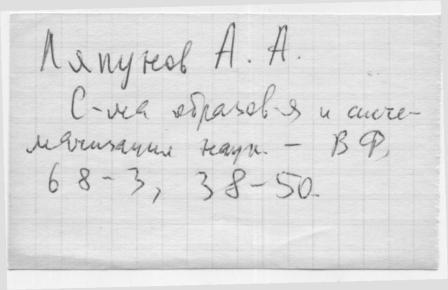 Ляпунов А. А.
С-ма образов-я и систе-
матизация наук. – ВФ,
68-3, 38-50.